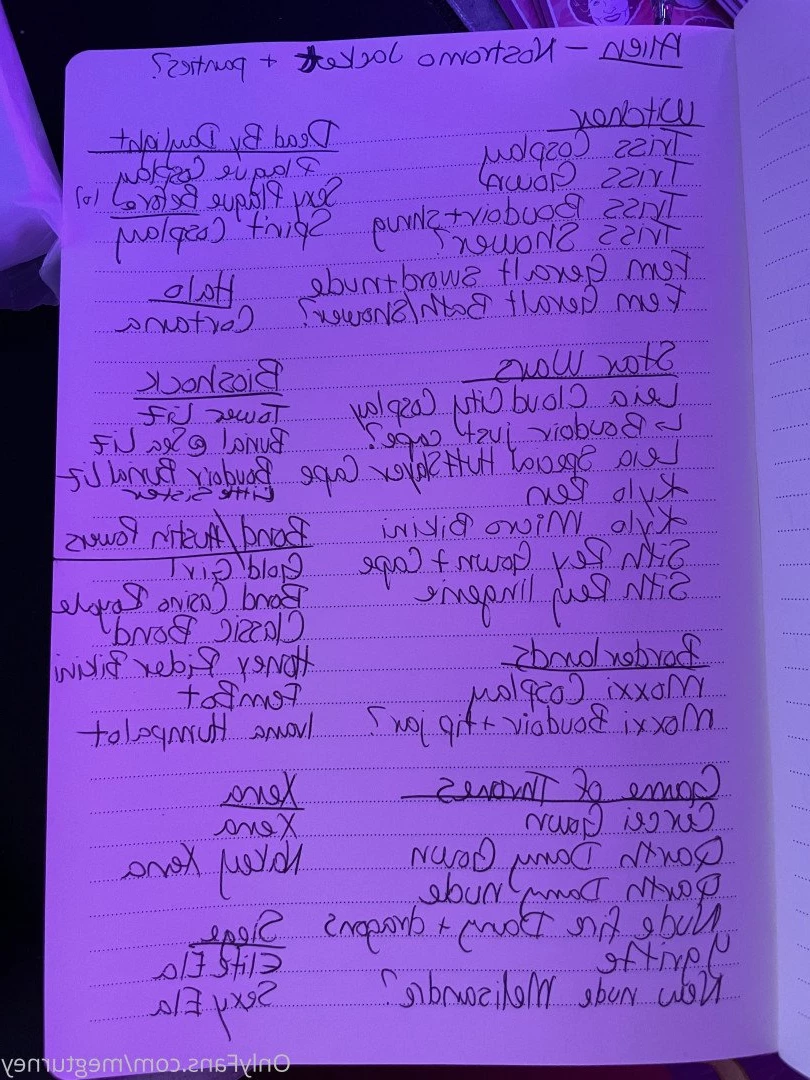 Alien – Nostromo Jacket + panties?
Witcher
Triss Cosplay
Triss Gown
Triss Boudoir + shrug
Triss Shower?
Fem Geralt sword + nude
Fem Geralt Bath/Shower?
Star Wars
Leia Cloud City Cosplay
↳ Boudoir just cape?
Leia Special HuttSlayer Cape
Kylo Ren
Kylo Micro Bikini
Sith Rey Gown + Cape
Sith Rey lingerie
Borderlands
Moxxi Cosplay
Moxxi Boudoir + tip jar?
Game of Thrones
Cercei Gown
Qarth Dany Gown
Qarth Dany nude
Nude fire Dany + dragons
Ygritte
New nude Melisandre?
Dead By Daylight
Plague Cosplay
Sexy Plague Before?
Spirit Cosplay
Halo
Cortana
Bioshock
Tower Liz
Burial @ Sea Liz
Boudoir Burial Liz
Little Sister
Bond/Austin Powers
Gold Girl
Bond Casino Royale
Classic Bond
Honey Rider Bikini
FemBot
Ivana Humpalot
Xena
Xena
Nakey Xena
Siege
Elite Ela
Sexy Ela
OnlyFans.com/megturney